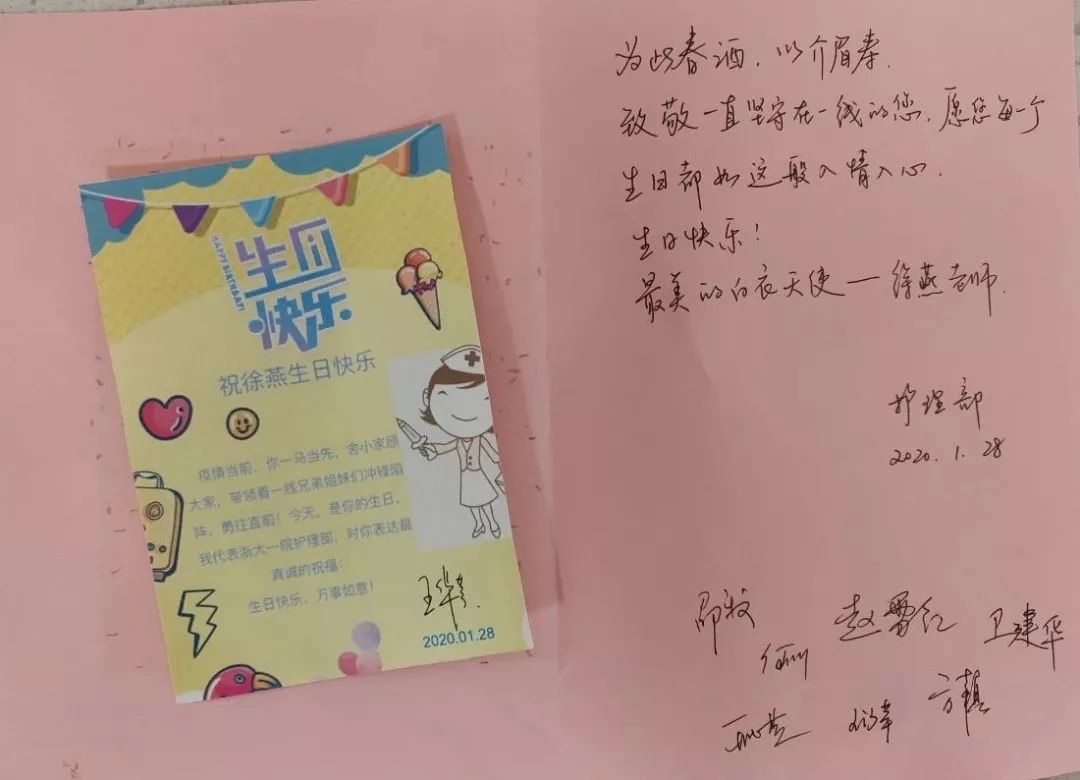 HAPPY BIRTHDAY
生日
快乐
祝徐燕生日快乐
疫情当前，你一马当先，舍小家顾
大家，带领着一线兄弟姐妹们冲锋陷
阵，勇往直前！今天，是你的生日，
我代表浙大一院护理部，对你表达最
真诚的祝福：
生日快乐，万事如意！
2020.01.28
为此春酒，以介眉寿.
致敬一直坚守在一线的您，愿您每一个
生日都如这般入情入心.
生日快乐！
最美的白衣天使——徐燕老师.
护理部
2020.1.28
赵雪红
卫建华